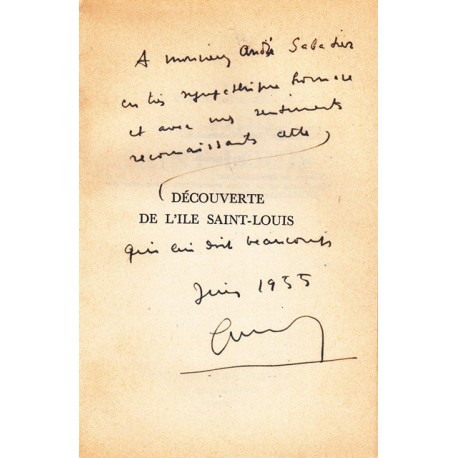 A monsieur André Sabatier
en très sympathique hommage
et avec mes sentiments
reconnaissants cette
DÉCOUVERTE
DE L'ILE SAINT-LOUIS
qui lui doit beaucoup
Juin 1955